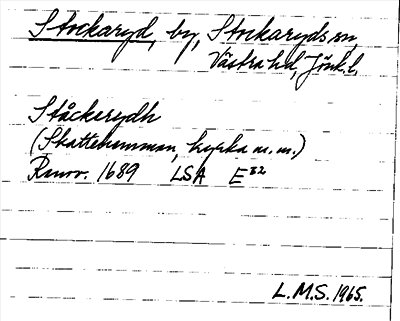 Stockaryd, by, Stockaryds sn,
Västra hd, Jönk.l.
Ståckerydh
(Skattehemman, kyrka m.m.)
Renov. 1689 LSA E32
L.M.S. 1965.